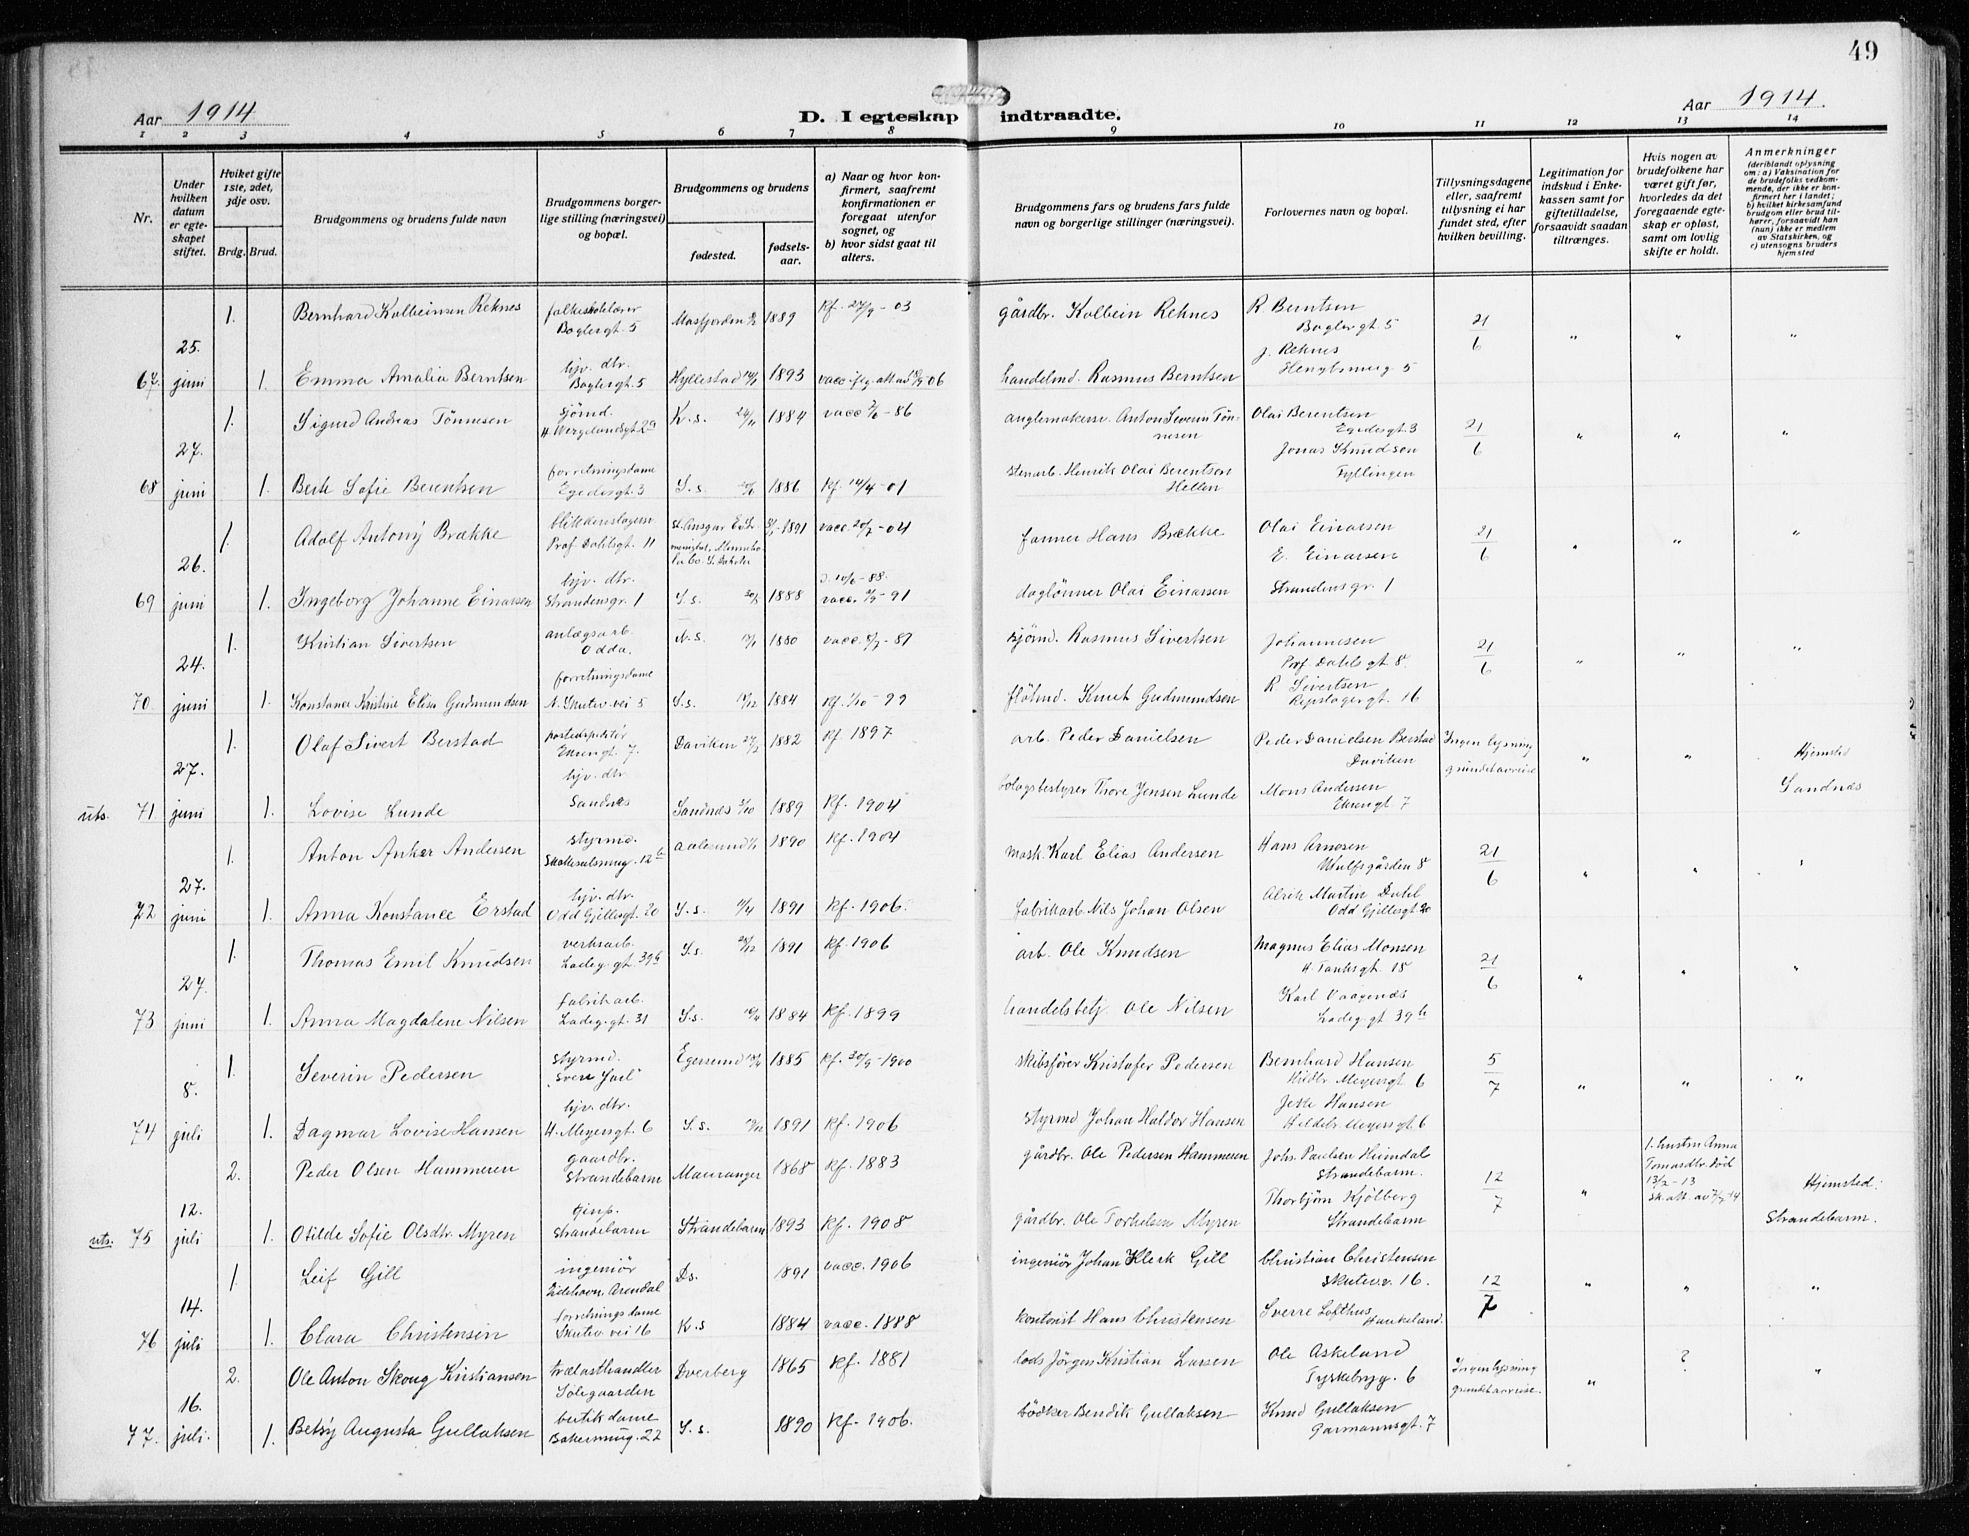 49
Aar 1914
D. I egteskap indtraadte.
Aar 1914.
1 2 3 4 5 6 7 8 9 10 11 12 13 14
Nr.
Under hvilken datum er egteskapet stiftet.
Hviket gifte 1ste, 2det, 3dje osv.
Brdg. Brud.
Brudgommens og brudens fulde navn
Brudgommens borgerlige stilling (næringsvei) og bopæl.
Brudgommens og brudens
fødested.
fødselsaar.
a) Naar og hvor konfirmert, saafremt konfirmationen er foregaat utenfor sognet, og
b) hvor sidst gaat til alters.
Brudgommens fars og brudens fars fulde navn og borgerlige stillinger (næringsvei).
Forlovernes navn og bopæl.
Tillysningsdagene eller, saafremt tillysning ei har fundet sted, efter hvilken bevilling.
Legitimation for indskud i Enkekassen samt for giftetilladelse, forsaavidt saadan tiltrænges.
Hvis nogen av brudefolkene har været gift før, hvorledes da det foregaaende egteskap er opløst, samt om lovlig skifte er holdt.
Anmerkninger
(deriblandt oplysning om: a) Vaksination for de brudefolks vedkommende, der ikke er konfirmert her i landet; b) hvilket kirkesamfund brudgom eller brud tilhører, forsaavidt han (hun) ikke er medlem av Statskirken, og c) utensogns bruders hjemsted
1. Bernhard Kolbeinsen Reknes folkeskolelærer Boglergt. 5 Masfjorden 1889 Kf. 27/9-03 gårdbr. Kolbein Reknes R. Berntsen Boglergt. 5 21/6 " " "
67. 25. juni 1. Emma Amalia Berntsen hjv. dtr. Boglergt. 5 Hyllestad 1893 handelmd. Rasmus Berntsen J. Reknes
1. Sigurd Andreas Tönnesen sjömd. H. Wergelandsgt. 29 K.s. 24/11 1884 vacc -86 Anton Severin Tönnesen Olai Berentsen Egedesgt. 3 21/6 " " "
68 27. juni 1. Berte Sofie Berentsen forretningsdame Egedesgt. 3 S.s. 1886 Kf. 14/4-01 stenarb. Henrik Olai Berentsen Hellen Jonas Knudsen Fyllingen
1. Adolf Antony Brække Prof. Dahlsgt. 11 1891 vacc. 20/7-04 farmer Hans Brække Olai Einarsen 21/6 " " "
69 26. juni 1. Ingeborg Johanne Einarsen hjv. dtr. Strandensgr. 1 S.s. 1888 vacc. -91 daglönner Olai Einarsen E. Einarsen Strandensgr. 1
1. Kristian Sivertsen anlægsarb. Odda. N.s. 1880 vacc. 8/7-87 sjömd. Rasmus Sivertsen Johannesen Prof. Dahls gt. 8. 21/6 " " "
70 24. juni 1. Konstance Kristine Elisa Gudmundsen forretningsdame N. Skutev. vei 5 S.s. 1884 Kf. 1/10-99 Knut Gudmundsen R. Sivertsen Repslagergt. 16
1. Olaf Sivert Berstad postexpeditör Engengt. 7. Daviken 1882 Kf. 1897 arb. Peder Danielsen Peder Danielsen Berstad Daviken Ingen lysning grundet avreise " " Hjemsted
uts. 71 27. juni 1. Lovise Lunde hjv. dtr Sandnæs Sandnæs 1889 Kf. 1904 bolagsbestyrer Thore Jensen Lunde Mons Andersen Engengt 7 Sandnæs
1. Anton Anker Andersen styrmd. Skolesalsmug. 12b Aalesund 1890 Kf. 1904 mask. Karl Elias Andersen Hans Arnesen Wulfsgården 8 21/6 " " "
72 27. juni 1. Anna Konstance Erstad hjv. dtr. Odd Gjillesgt. 20 S.s. 1891 Kf. 1906. fabrikarb. Nils Johan Olsen Alrik Martin Dahl Odd Gjillesgt 20
1. Thomas Emil Knudsen verksarb. Ladeg. gt. 39b S.s. 1891 Kf. 1906 arb. Ole Knudsen Magnus Elias Monsen H. Tanksgt. 18 21/6 " " "
73 27. juni 1. Anna Magdalene Nilsen fabrikarb. Ladeg. gt. 31 S.s. 1884 Kf. 1899 handelsbetj. Ole Nilsen Karl Vaagenæs Ladeg. gt 39b
1. Severin Pedersen styrmd. "Sven Jarl" Egersund 1885 Kf. 30/9-1900 skibsförer Kristofer Pedersen Bernhard Hansen Hildbr. Meyersgt. 6 5/7 " " "
74 8. juli 1. Dagmar Lovise Hansen hjv. dtr. H. Meyersgt. 6 S.s. 1891 Kf. 1906 styrmd Johan Haldor Hansen Jette Hansen Hildebr. Meyersgt 6
2. Peder Olsen Hammeren gaardbr. Strandebarm Mauranger 1868 Kf. 1883 gårdbr. Ole Pedersen Hammeren Johs. Paulsen Heimdal Strandebarm. 12/7 " 1. hustru Anna Tomasdtr. död 13/2-13 sk. att. av 7/7 14 Hjemsted:
uts. 75 12. juli 1. Otilde Sofie Olsdtr. Myren Strandebarm Strandebarm 1893 Kf. 1908 gårdbr. Ole Torkelsen Myren Thorbjørn Kjölberg Strandebarm Strandebarm.
1. Leif Gill ingeniör Eidehavn, Arendal Ds. 1891 vacc. 1906 ingeniör Johan Klerk Gill Christian Christensen Skutev. v. 16. 12/7 " " "
76 14. juli 1. Clara Christensen forretningsdame Skutev. vei 16 K.s 1884 vacc. 1888 kontorist Hans Christensen Sverre Lofthus Haukeland.
2. Ole Anton Skoug Kristiansen trælasthandler Solegaarden Dverberg 1865 Kf. 1881 lods Jörgen Kristian Larsen Ole Askeland Tyskebryg. 6 Ingen lysning grundet avreise. " ? "
77. 16. juli. 1. Betsy Augusta Gullaksen butikdame Bakermug. 22 S.s. 1890 Kf. 1906. bödker Bendik Gullaksen Knud Gullaksen Garmannsgt. 7